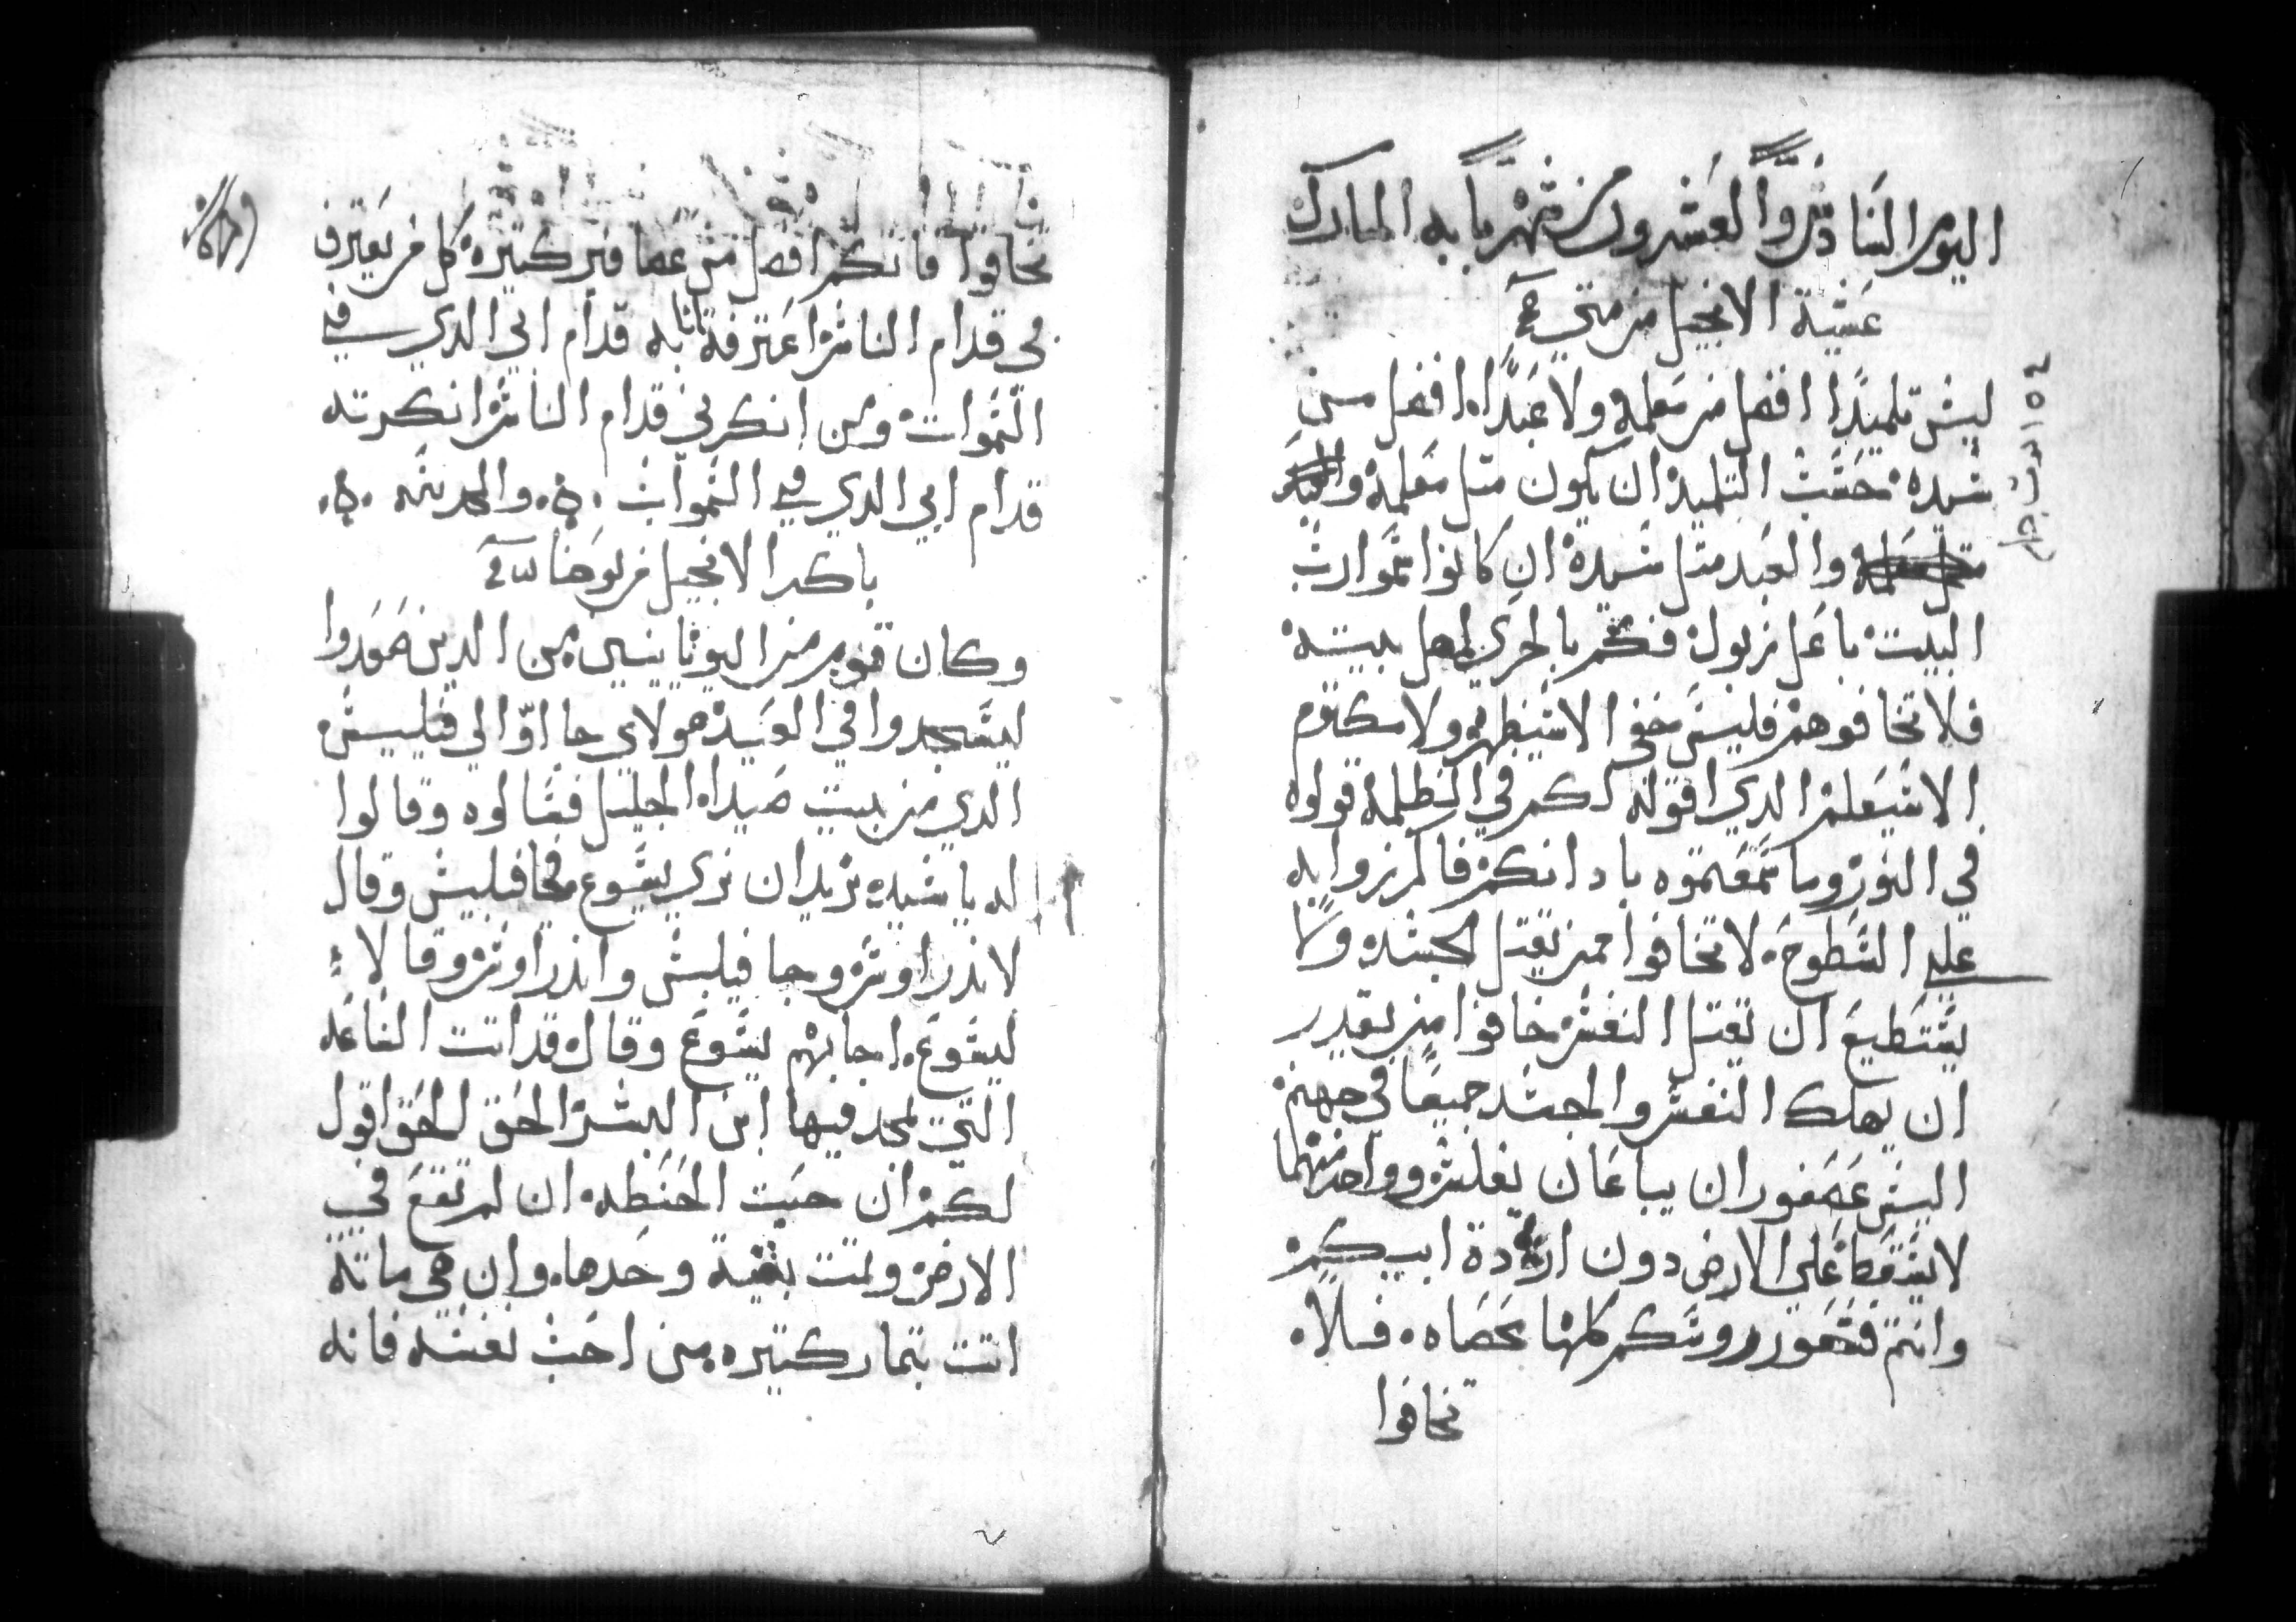 اليوم السادس والعشرون من شهر بابه المبارك
عشية الانجيل من متي
ليس تلميدا افضل من معلمه ولا عبدا افضل من
سيده حسب التلميد ان يكون متل معلمه
والعبد متل سيده ان كانوا سموا رب
البيت باعل زبول فكم بالحري اهل بيته
فلا تخافوهم فليس خفي الا سيظهر ولا مكتوم
الا سيعلم الدي اقوله لكم في الظلمة قولوه
في النور وما سمعتموه بادانكم فاكرزوا به
علي السطوح لا تخافوا ممن يقتل الجسد ولا
يستطيع ان يقتل النفس خافوا من يقدر
ان يهلك النفس والجسد جميعا في جهنم
اليس عصفوران يباعان بفلس وواحد منهما
لا يسقط علي الارض دون ارادة ابيكم
وانتم فشعور روسكم كلها محصاه فلا
تخافوا
تخافوا فانكم افضل من عصافير كتيره كل من يعترف
بي قدام الناس اعترفة انا به قدام ابي الدي في
السموات ومن انكرني قدام الناس انكرته
قدام ابي الدي في السموات والمجد لله
باكر الانجيل من يوحنا
وكان قوم من اليونانيين من الدين صعدوا
ليسجدوا في العيد هولاي جااوا الي فيلبس
الدي من بيت صيدا الجليل فسالوه وقالوا
له يا سيد نريد ان نري يسوع فجا فيلبس وقال
لاندراوس وجا فيلبس واندراوس وقالا
ليسوع اجابهم يسوع وقال قد اتت الساعه
التي يمجد فيها ابن البشر الحق الحق اقول
لكم ان حبت الحنطه ان لم تقع في
الارض وتمت بقية وحدها وان هي ماتة
اتت بتمار كتيره من احب نفسه فانه